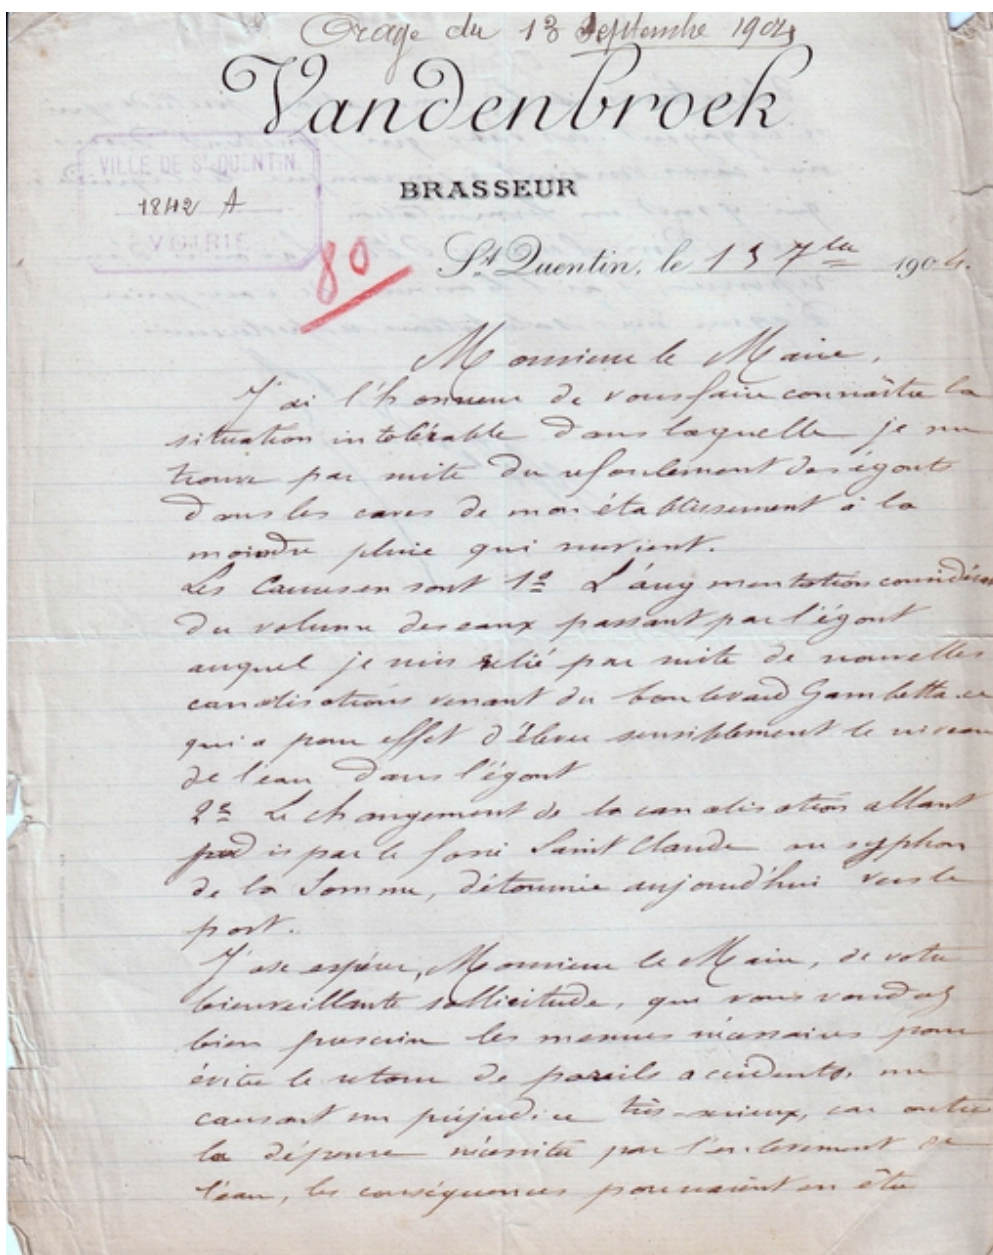 Orage du 13 Septembre 1904
Vandenbroek
BRASSEUR
VILLE DE St QUENTIN
1842 A
VOIRIE
80
St Quentin, le 13 7bre 1904.
Monsieur le Maire,
J'ai l'honneur de vous faire connaître la
situation intolérable dans laquelle je me
trouve par suite du refoulement des égouts
dans les caves de mon établissement à la
moindre pluie qui survient.
Les Causes en sont 1º L'augmentation considérable
du volume des eaux passant par l'égout
auquel je suis relié par suite de nouvelles
canalisations venant du boulevard Gambetta ce
qui a pour effet d'élever sensiblement le niveau
de l'eau dans l'égout
2º Le changement de la canalisation allant
jadis par le fossé Saint Claude au syphon
de la Somme, détournée aujourd'hui vers le
port.
J'ose espérer, Monsieur le Maire, de votre
bienveillante sollicitude, que vous voudrez
bien prescrire les mesures nécessaires pour
éviter le retour de pareils accidents, me
causant un préjudice très-sérieux, car outre
la dépense nécessitée par l'enlèvement de
l'eau, les conséquences pourraient en être